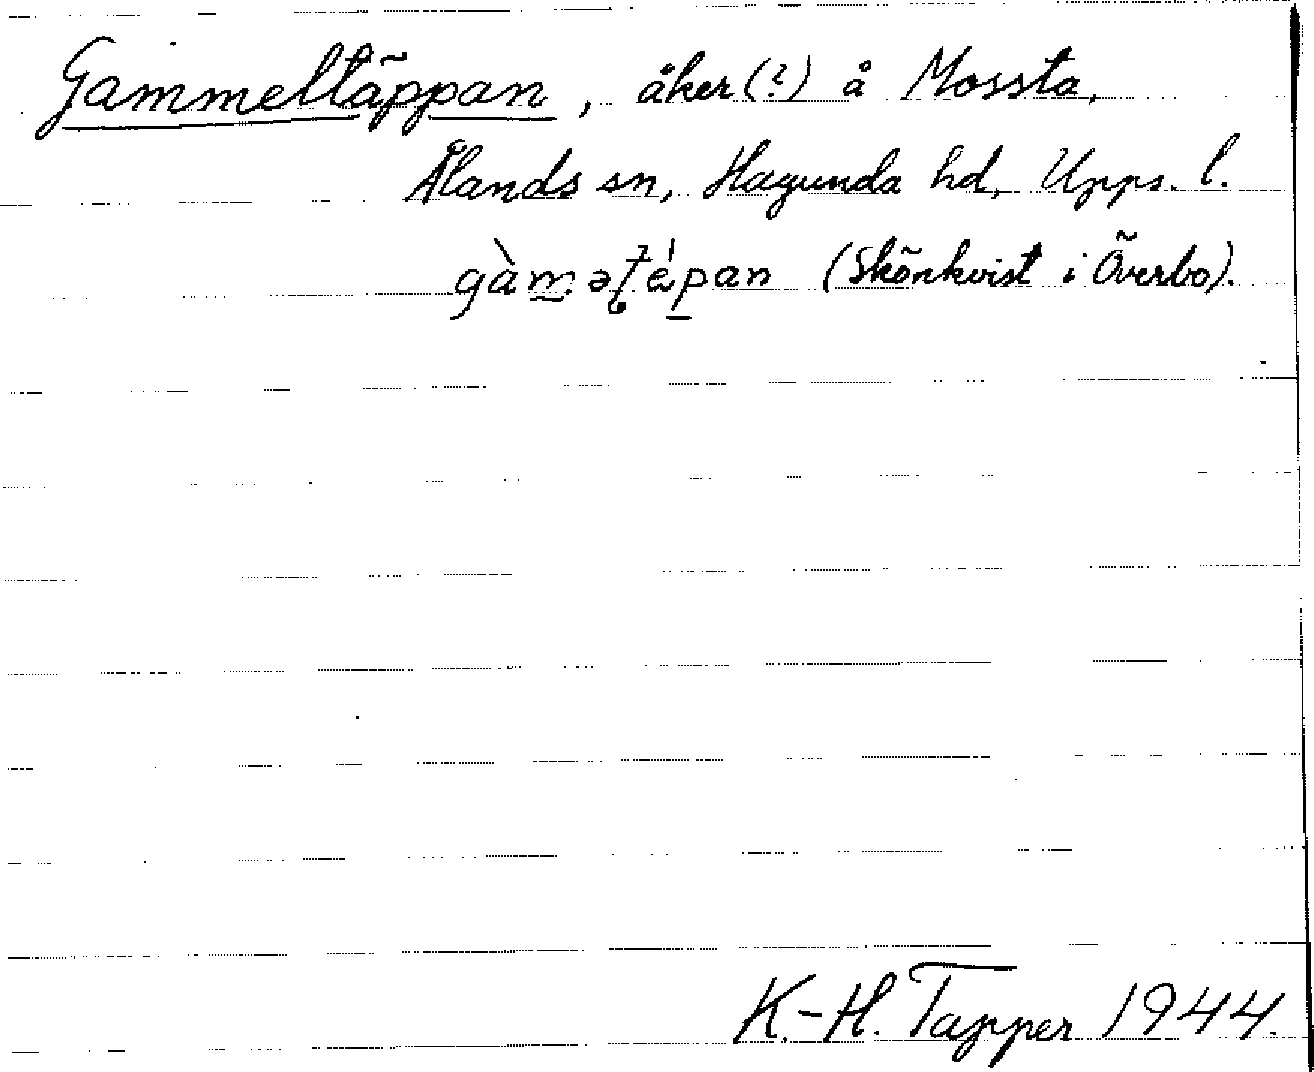 Gammeltäppan, åker(?) å Mossta,
Ålands sn, Hagunda hd, Upps. l.
gàm̲əƭép̲an (Skönkvist i Överbo).
K.-H. Tapper 1944.